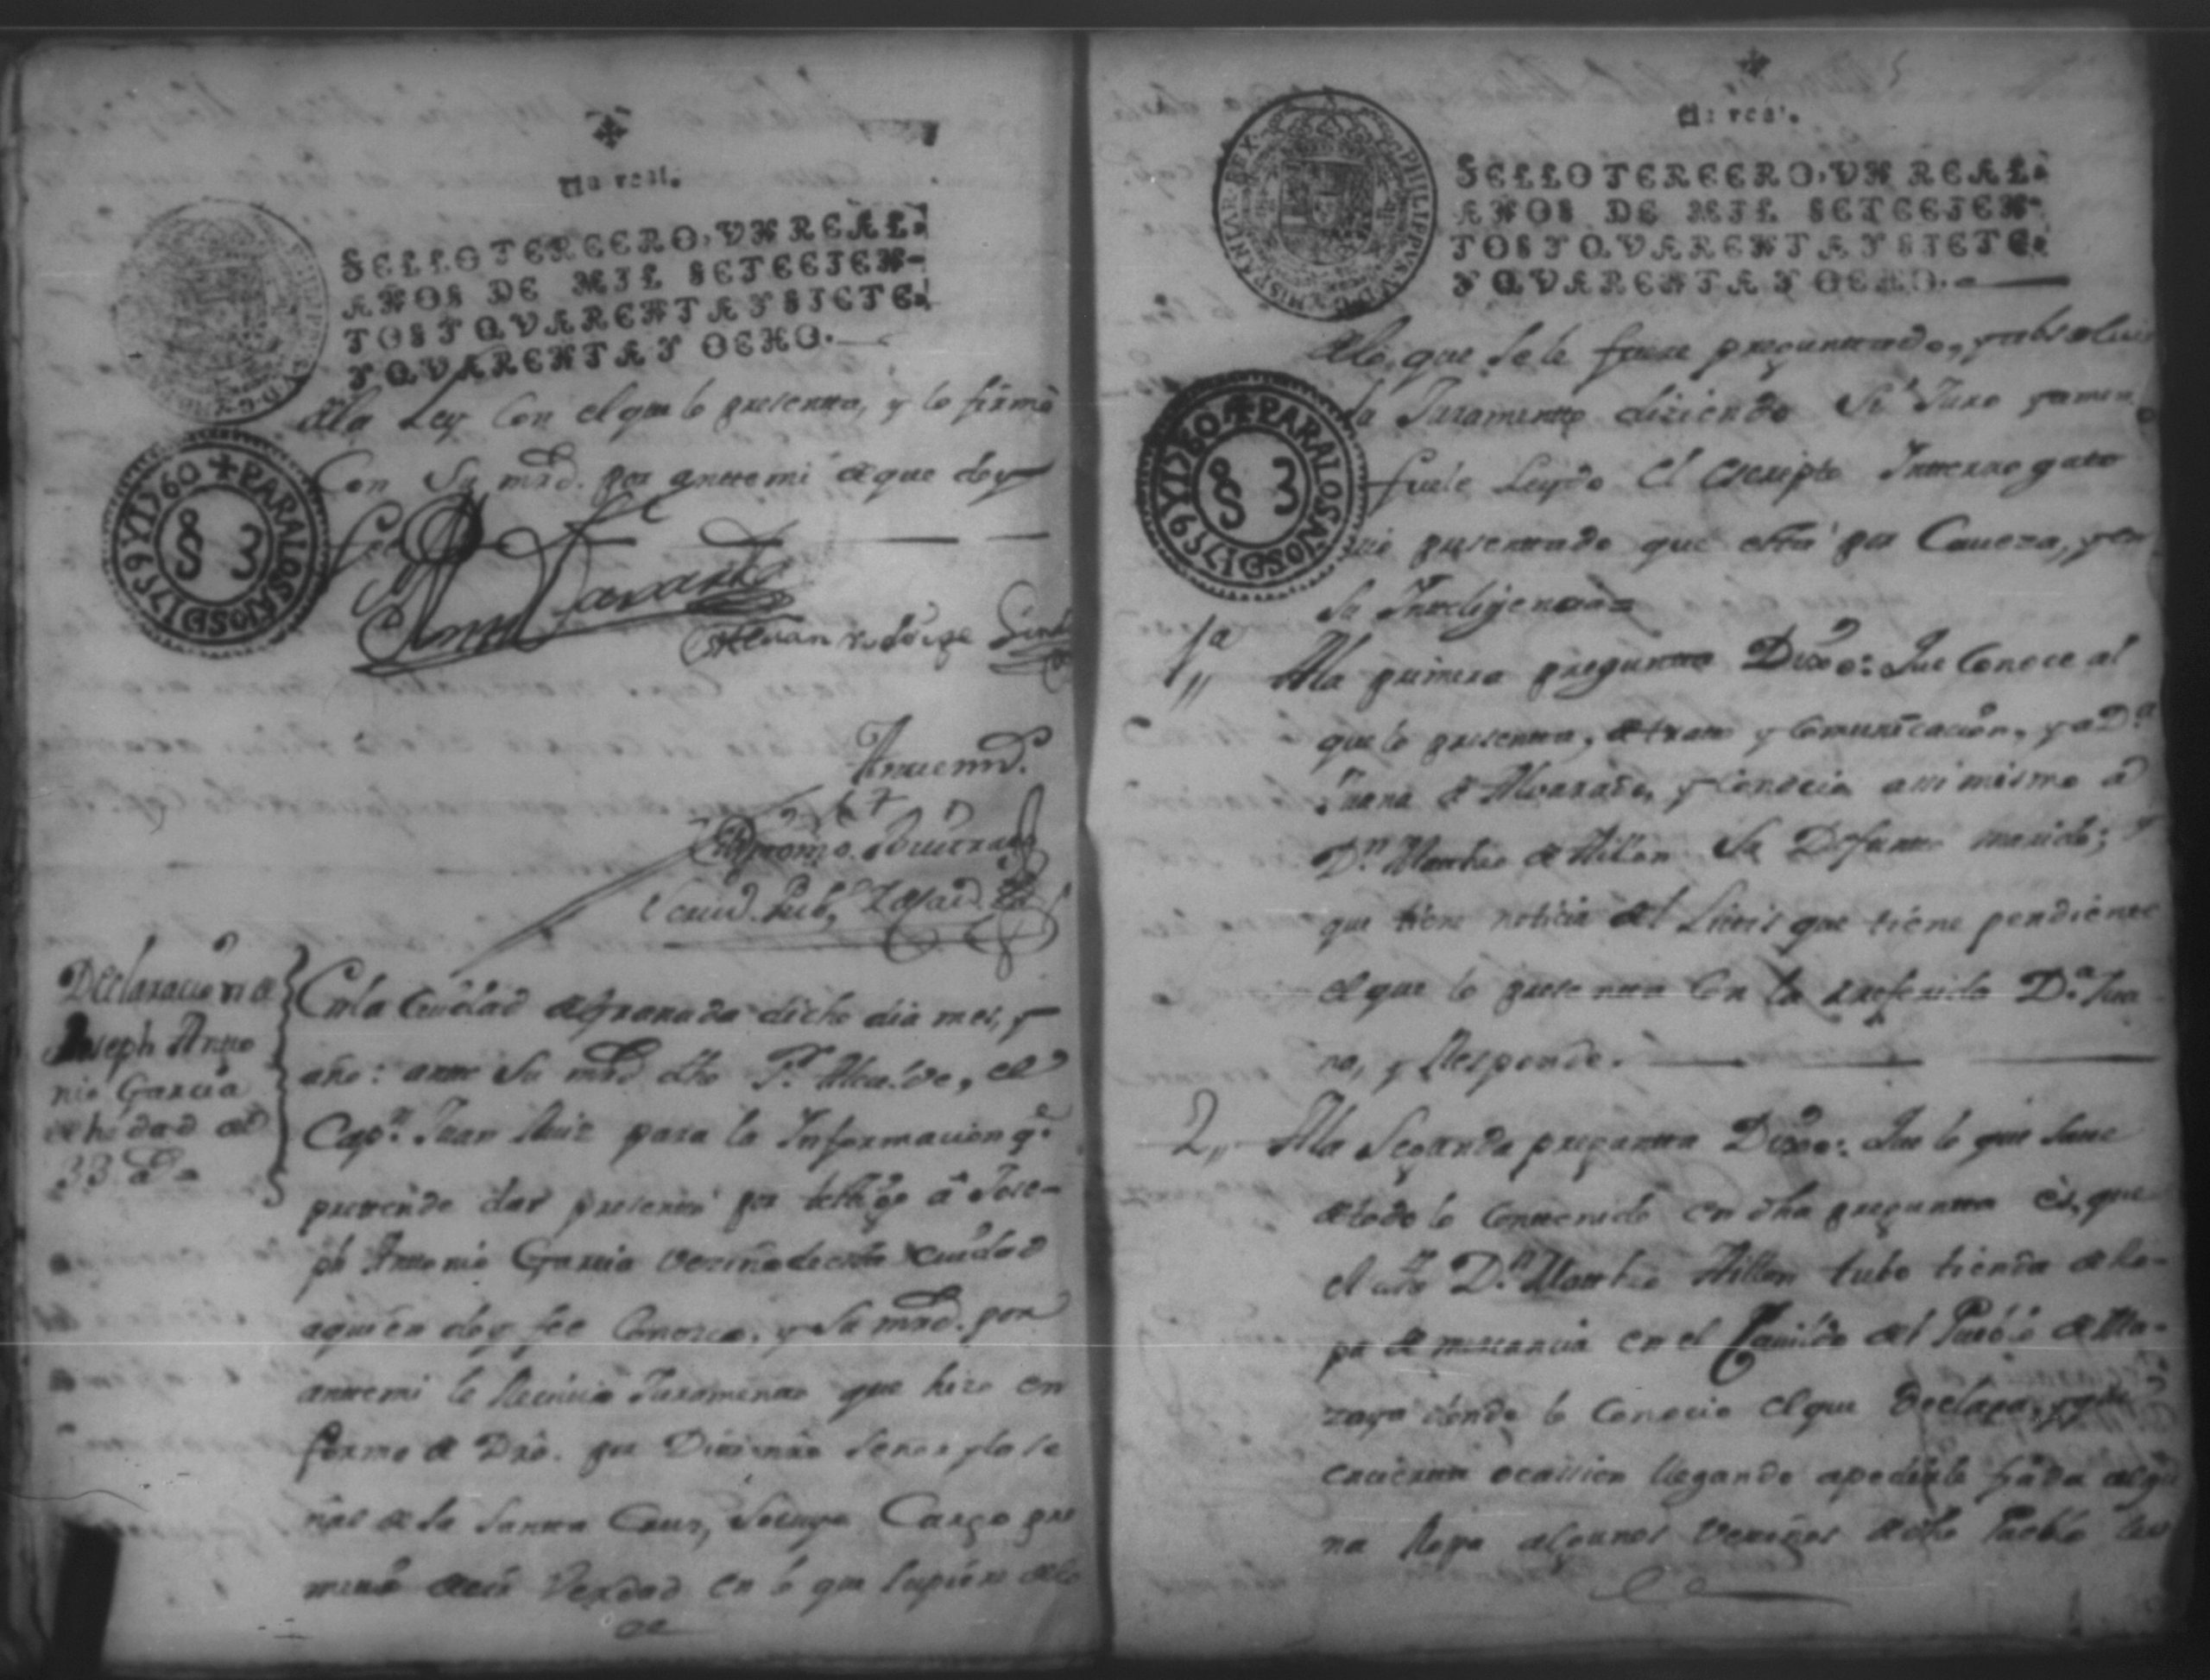 Un real.
SELLO TERCERO, VN REAL,
AÑOS DE MIL SETECIEN-
TOS Y QVARENTA Y SIETE,
Y QVARENTA Y OCHO.
PARA LOS AÑOS D 1759 Y 1760
S 3
dela Ley Con el que lo presenta, y lo firmó
Con Su mrd. por antemi de que doy
fee
Antemi.
Escriv. Pub.
Declaracion de
Joseph Anto
nio Garcia
de hedad de
33 as
Enla Ciudad de Granada dicho dia mes, y
año: ante Su mrd dho Sr. Alcalde, el
Capn. Juan Ruiz para la Informacion qe.
pretende dar presentó por testigo â Jose-
ph Antonio Garcia vezino de esta Ciudad
aquien doy fee Conosco, y Su mrd. por
antemi le Recivio Juramento que hizo en
forma de Dro. por Dios nro Señor y la se
ñal de la Santa Cruz, Socuyo Cargo pro
metió decir Verdad en lo que Supiere dello
Un real.
SELLO TERCERO, VN REAL,
AÑOS DE MIL SETECIEN-
TOS Y QVARENTA Y SIETE,
Y QVARENTA Y OCHO.
PHILIPPVS V D G HISPANIAR REX
PARA LOS AÑOS D 1759 Y 1760
S 3
delo, que Sele fuere preguntado, y
Juramento diziendo Si Juro y amen
fuele Leydo el escripto Interrogato
rio presentado que está por Caveza, y en
Su Inteligencia=
1a Ala primera pregunta Dixo: Que Conoce al
que lo presenta, de trato y Comunicacion, y a Da.
Juana de Alvarado, y Conocio assimismo â
Dn. Matheo de Aillon Su Defunto marido; y
que tiene noticia del Litis que tiene pendiente
el que lo presenta Con la referida Da. Jua
na, y Responde.
2,, Ala Segunda pregunta Dixo: Que lo que Save
de todo lo Contenido en dha pregunta es, que
el dho Dn. Matheo Aillon tubo tienda de Ro-
pa de mercancia en el Cavildo del Pueblo de Ma-
zaya donde lo Conocio el que Declara, y que
en cierta ocassion llegando a pedirle fiada algu
na Ropa algunos Vezinos de dho Pueblo